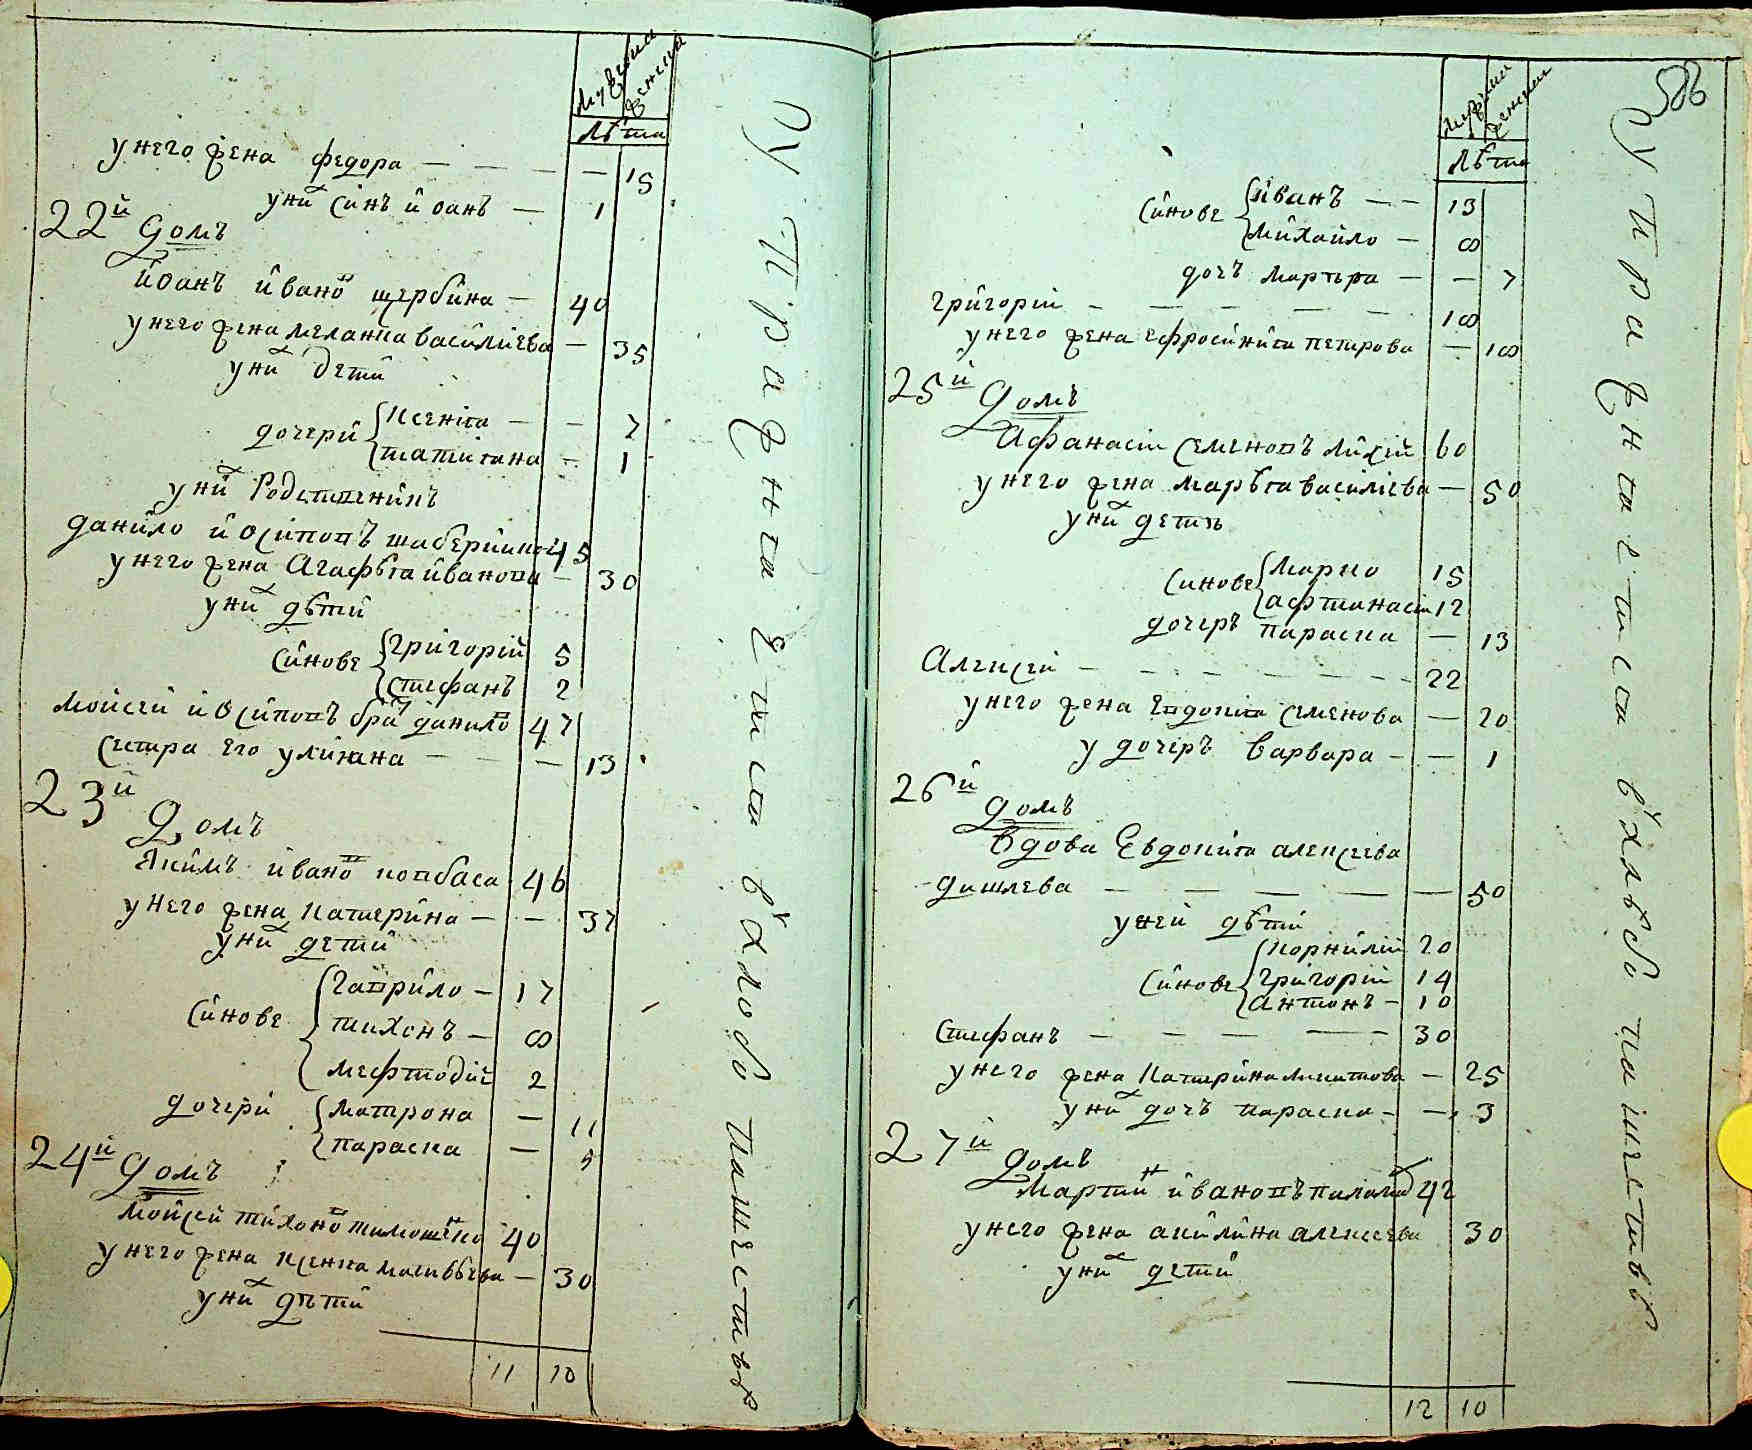 мужеска
женска
лѣта
у него жена федора — — — — 15
у ниⷯ синъ иоанъ — 1
22й домъ
иоанъ иваноⷡ щербина — 40
у него жена меланка василіева — 35
у ниⷯ дети
дочери ксенія — — 7
татияна — 1
у ниⷯ Родственикъ
данило иосіповъ 45
у него жена Агафѣя иванова — 30
у ниⷯ дѣти
синове григорій 5
стефанъ 2
моисей иосіповъ браⷮ данилоⷡ 47
сестра его улияна — — — 13
23й
домъ
Якимъ иваноⷡ ковбаса 46
у него жена катерина — — 37
у ниⷯ дети
синове гаврило — 17
тихонъ — 8
мефтодій 2
дочери матрона — 11
параска — 5
24й домъ
моисей тихоноⷡ тимошеⷩко 40
у него жена ксенка матвѣева — 30
у ниⷯ дѣти
11 10
У пражнает
мужеска
женска
лѣта
синове иванъ — — 13
михайло — 8
дочъ марѣя — — 7
григорій — — — — — 18
у него жена ефросинія петрова — 18
25й
домъ
Афанасій семеновъ лихій 60
у него жена марѣя василіева — 50
у ниⷯ дети
синове марко 15
афтанасій 12
дочеръ параска — 13
Алексей — — — — — — 22
у него жена Евдокія семенова — 20
у дочеръ варвара — — 1
26й
домъ
вдова Евдокія алексеева
дашлева — — — — — 50
у ней дѣти
синове корнилій 20
григорій 14
антонъ — 10
Стефанъ — — — — 30
у него жена катерина никитова — 25
у ниⷯ дочъ параска — — 3
27й
домъ
мартиⷩ ивановъ 42
у него жена акилина алексеева 30
у ниⷯ дети
12 10